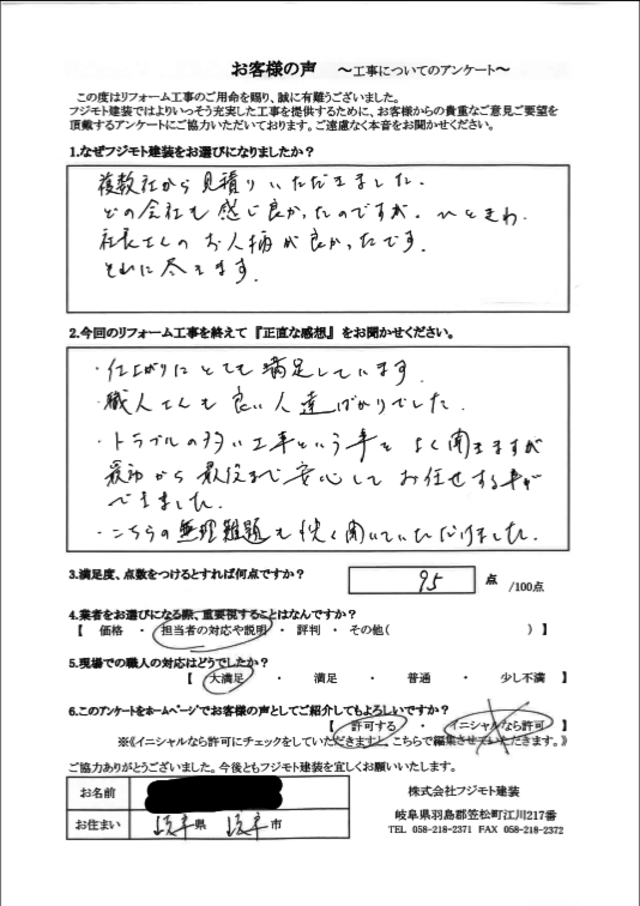 お客様の声　～工事についてのアンケート～
この度はリフォーム工事のご用命を賜り、誠に有難うございました。
フジモト建装ではよりいっそう充実した工事を提供するために、お客様からの貴重なご意見ご要望を
頂戴するアンケートにご協力いただいております。ご遠慮なく本音をお聞かせください。
1.なぜフジモト建装をお選びになりましたか？
複数社から見積りいただきました.
どの会社も感じ良かったのですが、ひときわ.
社長さんのお人柄が良かったです.
それに尽きます.
2.今回のリフォーム工事を終えて『正直な感想』をお聞かせください。
・仕上がりにとても満足しています.
・職人さんも良い人達ばかりでした.
・トラブルの多い工事という事をよく聞きますが
最初から最後まで安心してお任せする事が
できました.
・こちらの無理難題も快く聞いていただけました.
3.満足度、点数をつけるとすれば何点ですか？　95　点　/100点
4.業者をお選びになる際、重要視することはなんですか？
【　価格　・　担当者の対応や説明　・　評判　・　その他(　　　　)　】
5.現場での職人の対応はどうでしたか？
【　大満足　・　満足　・　普通　・　少し不満　】
6.このアンケートをホームページでお客様の声としてご紹介してもよろしいですか？
【　許可する　・　イニシャルなら許可　】
※《イニシャルなら許可にチェックをしていただきますと、こちらで編集させていただきます。》
ご協力ありがとうございました。今後ともフジモト建装を宜しくお願いいたします。
お名前
お住まい　岐阜県　岐阜市
株式会社フジモト建装
岐阜県羽島郡笠松町江川217番
TEL 058-218-2371 FAX 058-218-2372